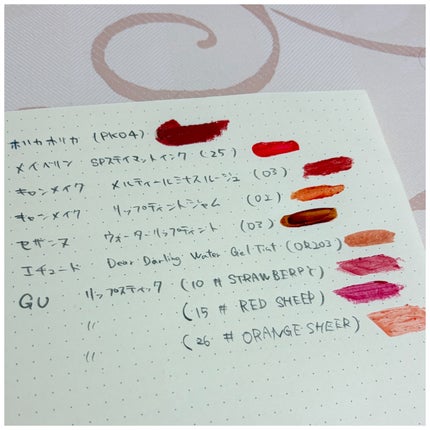 ホリカホリカ (PK04)
メイベリン SPステイマットインク (25)
キャンメイク メルティールミナスルージュ (03)
キャンメイク リップティントジャム (02)
セザンヌ ウォーターリップティント (03)
エチュード Dear Darling Water Gel Tint (OR203)
GU リップスティック (10 # STRAWBERRY)
〃 (15 # RED SHEEP)
〃 (26 # ORANGE SHEER)